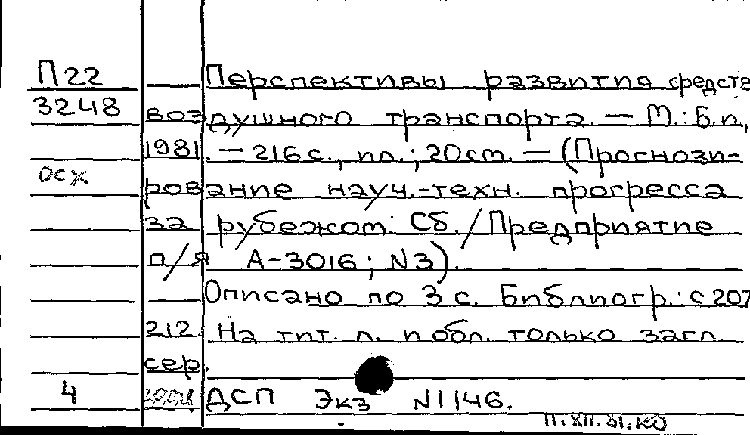 П22 Перспективы развития средств
3248 воздушного транспорта. — М.: Б.и.,
1981. — 216 с., ил.; 20 см. — (Прогнози-
ОСХ рование науч.-техн. прогресса
за рубежом: Сб. / Предприятие
п/я А-3016; N3).
Описано по 3 с. Библиогр.: с 207
212. На тит. л. и обл. только загл.
сер.
4 ДСП Экз N1146.
11.XII.81.КО